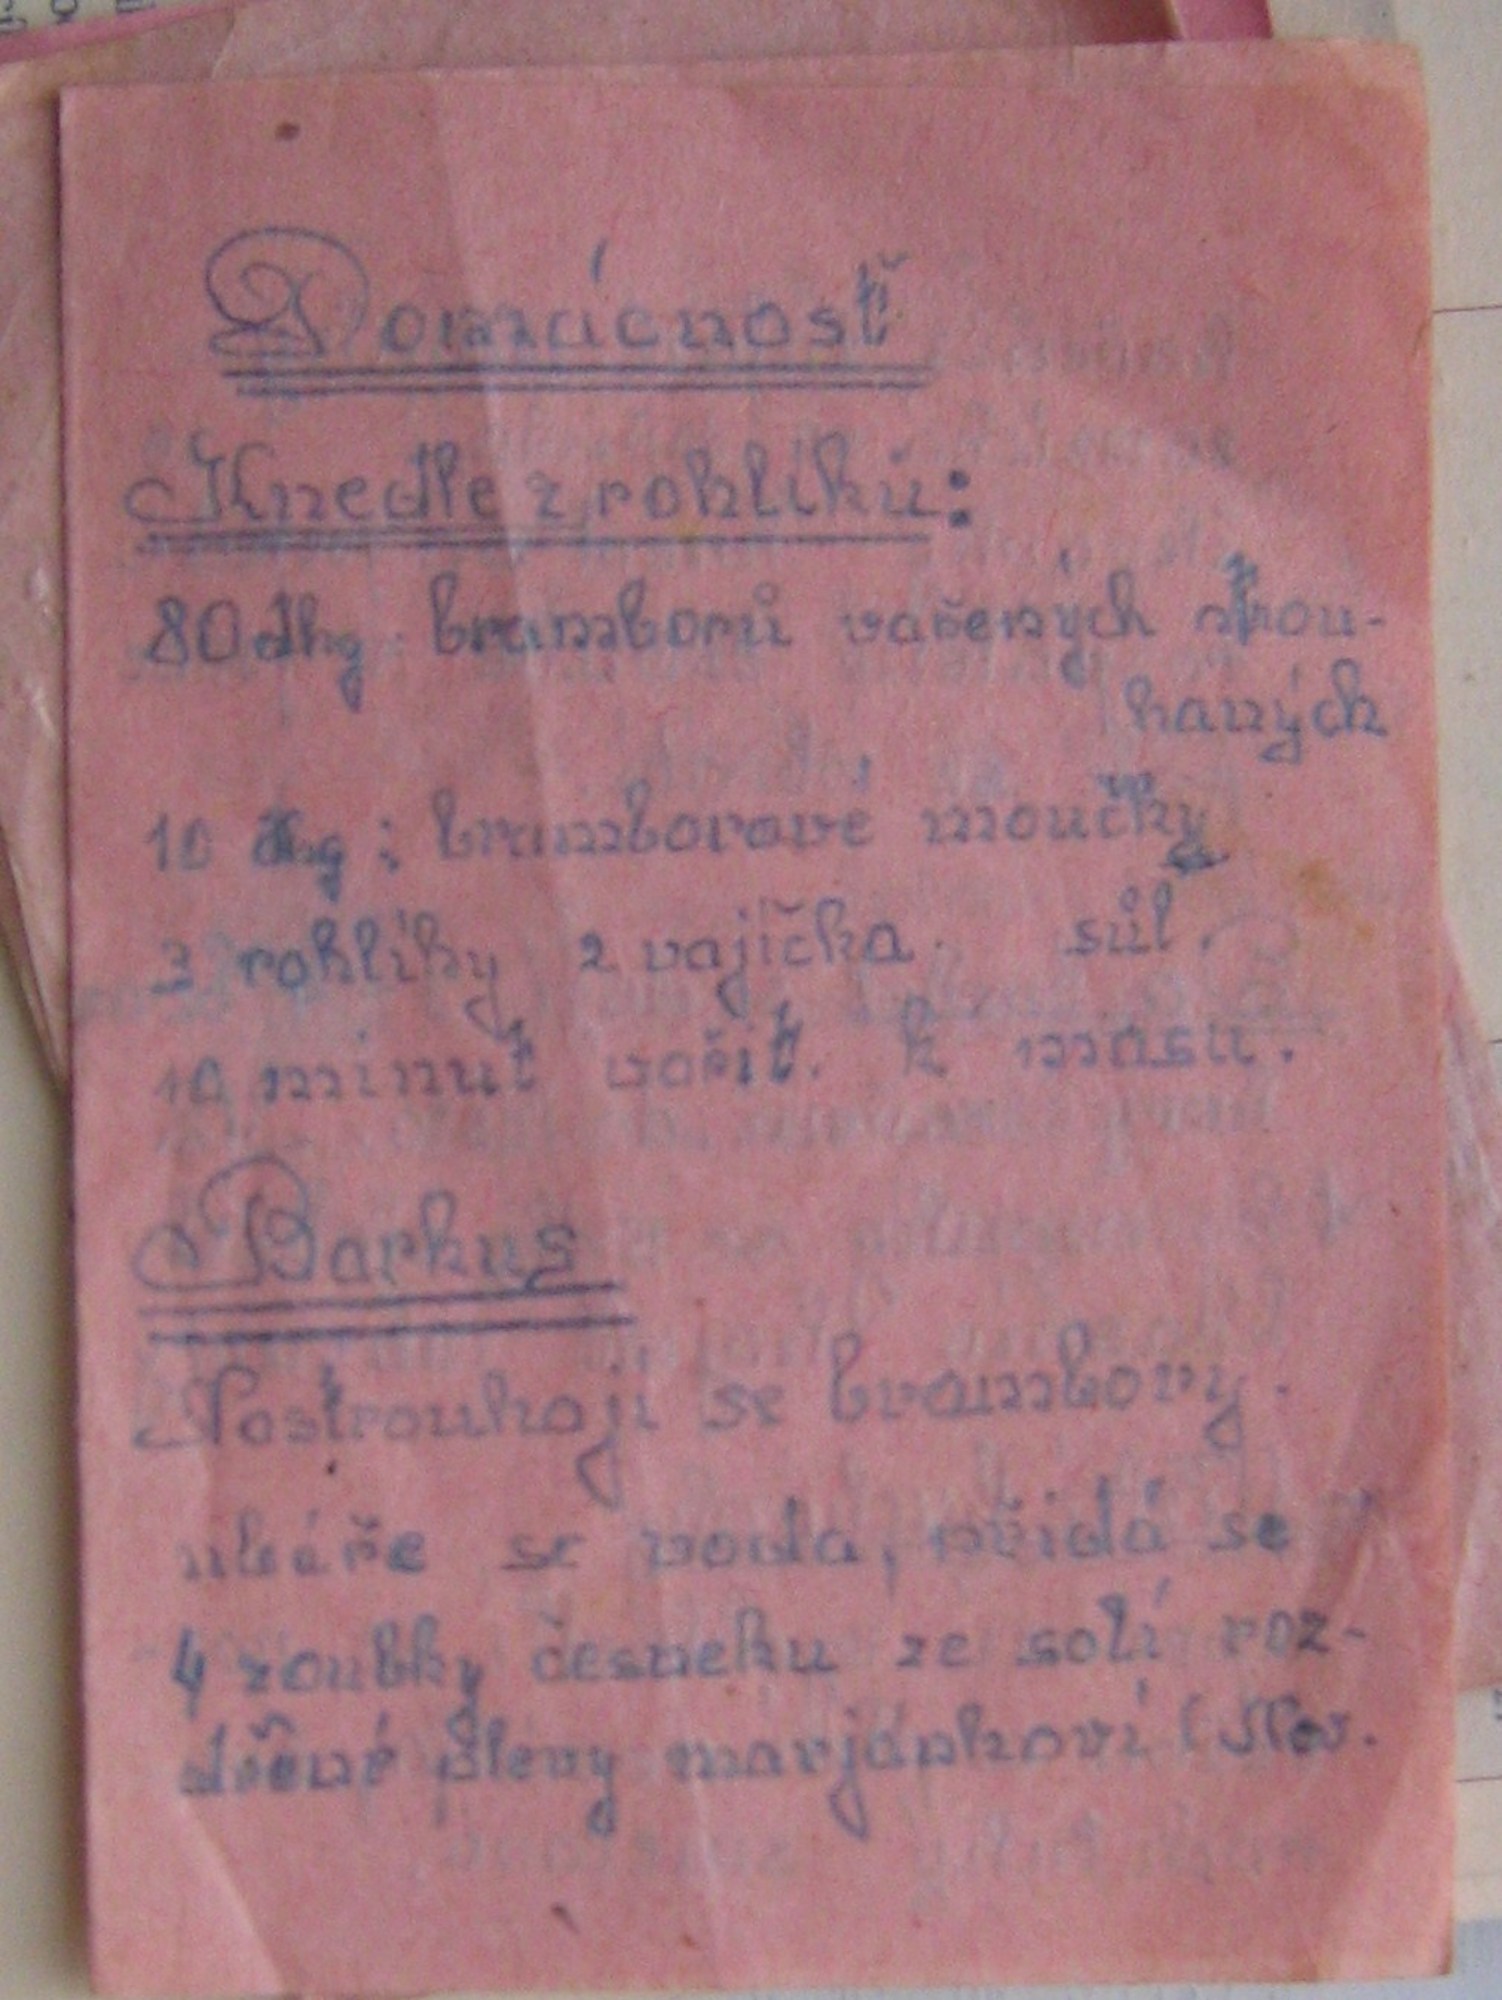 Domácnosť
Knedle z rohlíků:
80 dkg. bramborů vařených strou-
haných
10 dkg: bramborové moučky
3 rohlíky 2 vajíčka. sůl.
10 minut vařit. k masu.
Barkus
Postrouhají se brambory.
se voda, přidá se
4 zoubky česneku ze solí roz-
dřené plevy marjánkoví (